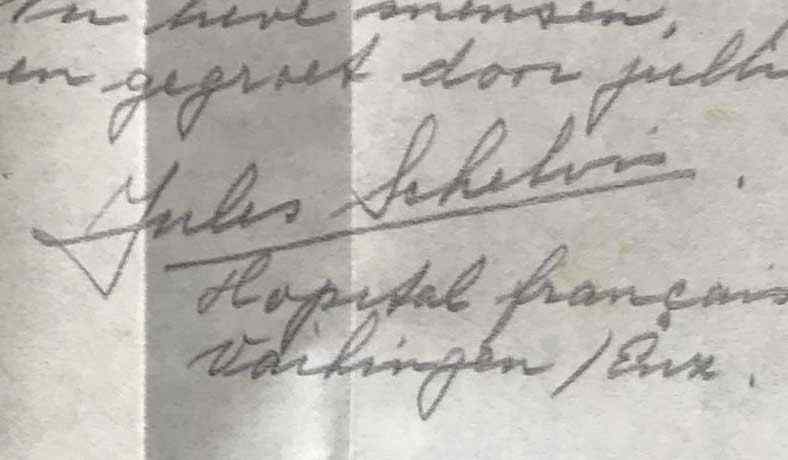 Nu lieve mensen,
en gegroet door
Jules Schelvis.
Hopital français
Vaihingen / Enz.